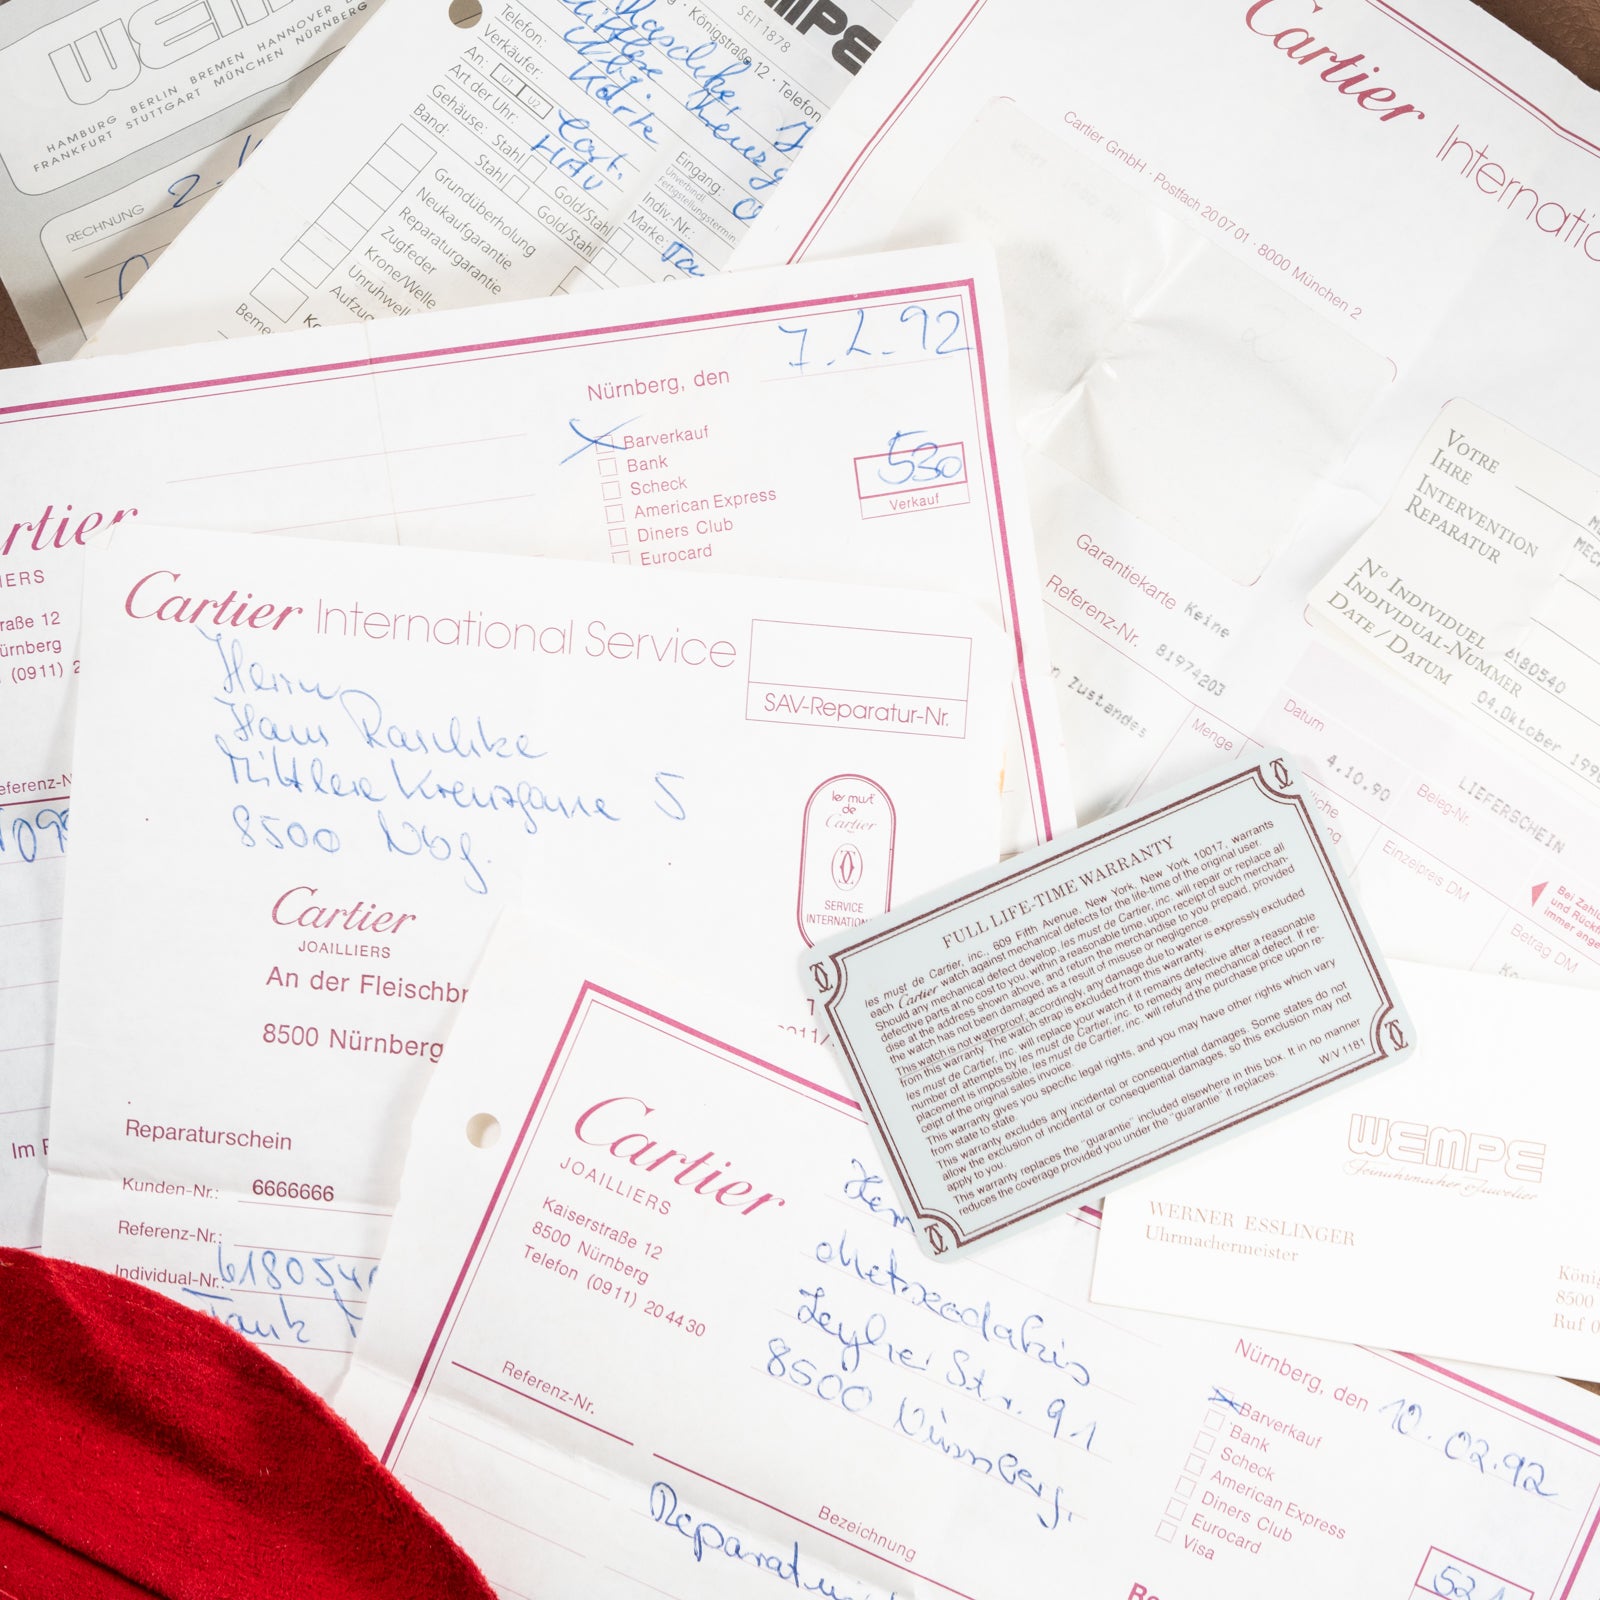 BERLIN BREMEN HANNOVER
HAMBURG
FRANKFURT STUTTGART MÜNCHEN NÜRNBERG
RECHNUNG
Königstraße 12 · Telefon
SEIT 1878
Telefon:
Verkäufer:
An: U1 U2
Art der Uhr: Cart.
Gehäuse: Stahl Gold/Stahl
Stahl Gold/Stahl
Band:
Karte
Eingang:
Unverbindl.
Fertigstellungstermin
Indiv.-Nr.:
Marke:
Grundüberholung
Neukaufgarantie
Reparaturgarantie
Zugfeder
Krone/Welle
Unruhwell
Aufzug
Cartier Internatio
Cartier GmbH · Postfach 20 07 01 · 8000 München 2
Garantiekarte Keine
Referenz-Nr. 81974203
Zustandes
Menge
Datum
4.10.90
Beleg-Nr.
LIEFERSCHEIN
Einzelpreis DM
Betrag DM
Bei Zahl
und Rückf
immer ange
VOTRE
IHRE
INTERVENTION
REPARATUR
N° INDIVIDUEL
INDIVIDUAL-NUMMER 6180540
DATE / DATUM 04.Oktober 1990
Nürnberg, den 7.2.92
Barverkauf
Bank
Scheck
American Express
Diners Club
Eurocard
530
Verkauf
rtier
IERS
raße 12
ürnberg
(0911) 2
eferenz-N
Cartier International Service
SAV-Reparatur-Nr.
Herrn
Hans Raschke
Mittlere Kreuzgasse 5
8500 Nbg.
les must
de
Cartier
SERVICE
INTERNATION
Cartier
JOAILLIERS
An der Fleischbr
8500 Nürnberg
Reparaturschein
Kunden-Nr.: 6666666
Referenz-Nr.:
Individual-Nr. 6180540
Tank
FULL LIFE-TIME WARRANTY
les must de Cartier, inc., 609 Fifth Avenue, New York, New York 10017, warrants
each Cartier watch against mechanical defects for the life-time of the original user.
Should any mechanical defect develop, les must de Cartier, inc. will repair or replace all
defective parts at no cost to you, within a reasonable time, upon receipt of such merchan-
dise at the address shown above, and return the merchandise to you prepaid, provided
the watch has not been damaged as a result of misuse or negligence.
This watch is not waterproof; accordingly, any damage due to water is expressly excluded
from this warranty. The watch strap is excluded from this warranty.
les must de Cartier, inc. will replace your watch if it remains defective after a reasonable
number of attempts by les must de Cartier, inc. to remedy any mechanical defect. If re-
placement is impossible, les must de Cartier, inc. will refund the purchase price upon re-
ceipt of the original sales invoice.
This warranty gives you specific legal rights, and you may have other rights which vary
from state to state.
This warranty excludes any incidental or consequential damages. Some states do not
allow the exclusion of incidental or consequential damages, so this exclusion may not
apply to you.
This warranty replaces the "guarantie" included elsewhere in this box. It in no manner
reduces the coverage provided you under the "guarantie" it replaces.
W/V 1181
WEMPE
Feinuhrmacher & Juwelier
WERNER ESSLINGER
Uhrmachermeister
König
8500
Ruf 0
Cartier
JOAILLIERS
Kaiserstraße 12
8500 Nürnberg
Telefon (0911) 20 44 30
Leyher Str. 91
8500 Nürnberg.
Referenz-Nr.
Bezeichnung
Nürnberg, den 10.02.92
Barverkauf
Bank
Scheck
American Express
Diners Club
Eurocard
Visa